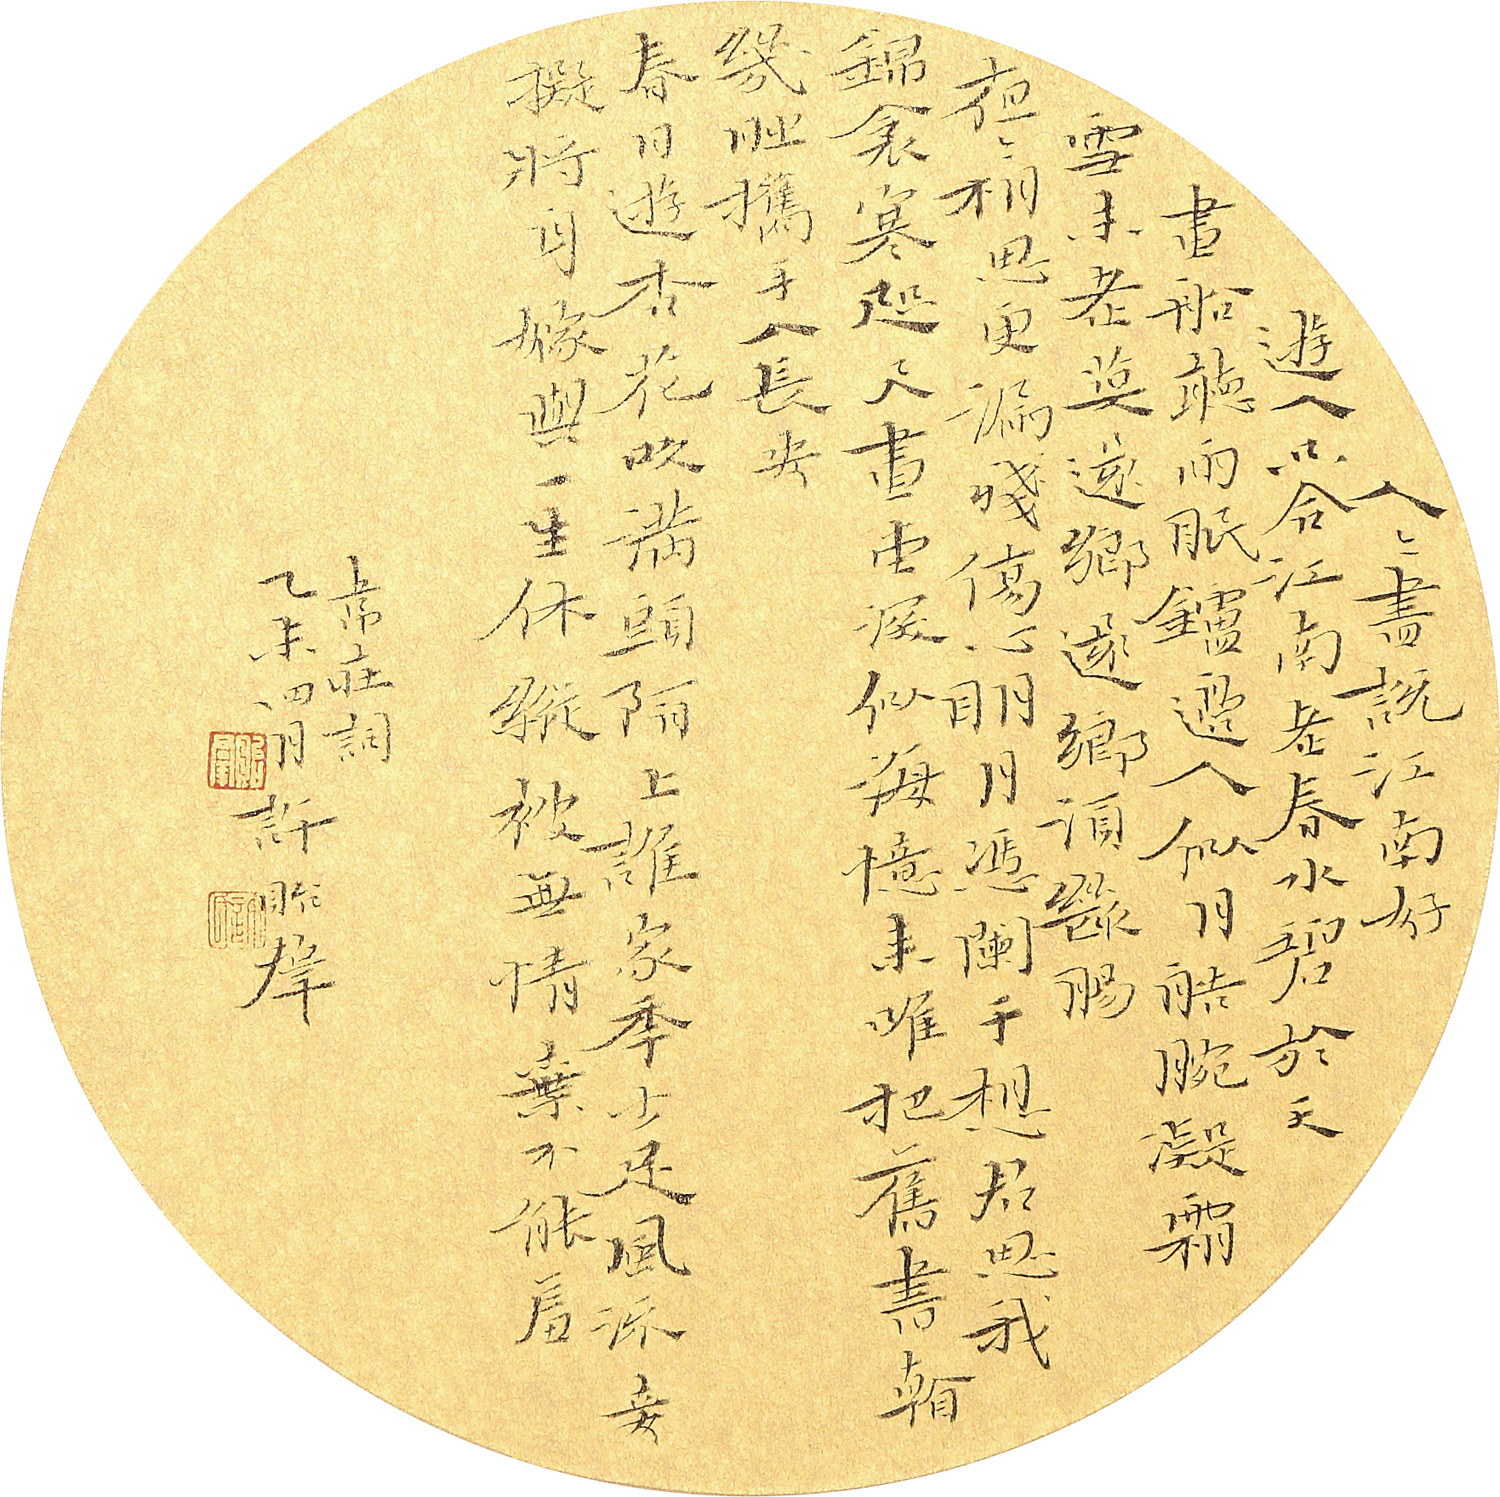 人〻盡説江南好
遊人只合江南老春水碧於天
畫船聽雨眠鑪邊人似月皓腕凝霜
雪未老莫還鄉還鄉須斷腸
夜〻相思更漏殘傷心明月憑闌干想君思我
錦衾寒咫尺畫堂深似海憶來唯把舊書看
幾時攜手入長安
春日遊杏花吹滿頭陌上誰家年少足風流妾
擬將身嫁與一生休縱被無情棄不能羞
韋莊詞
乙未四月許